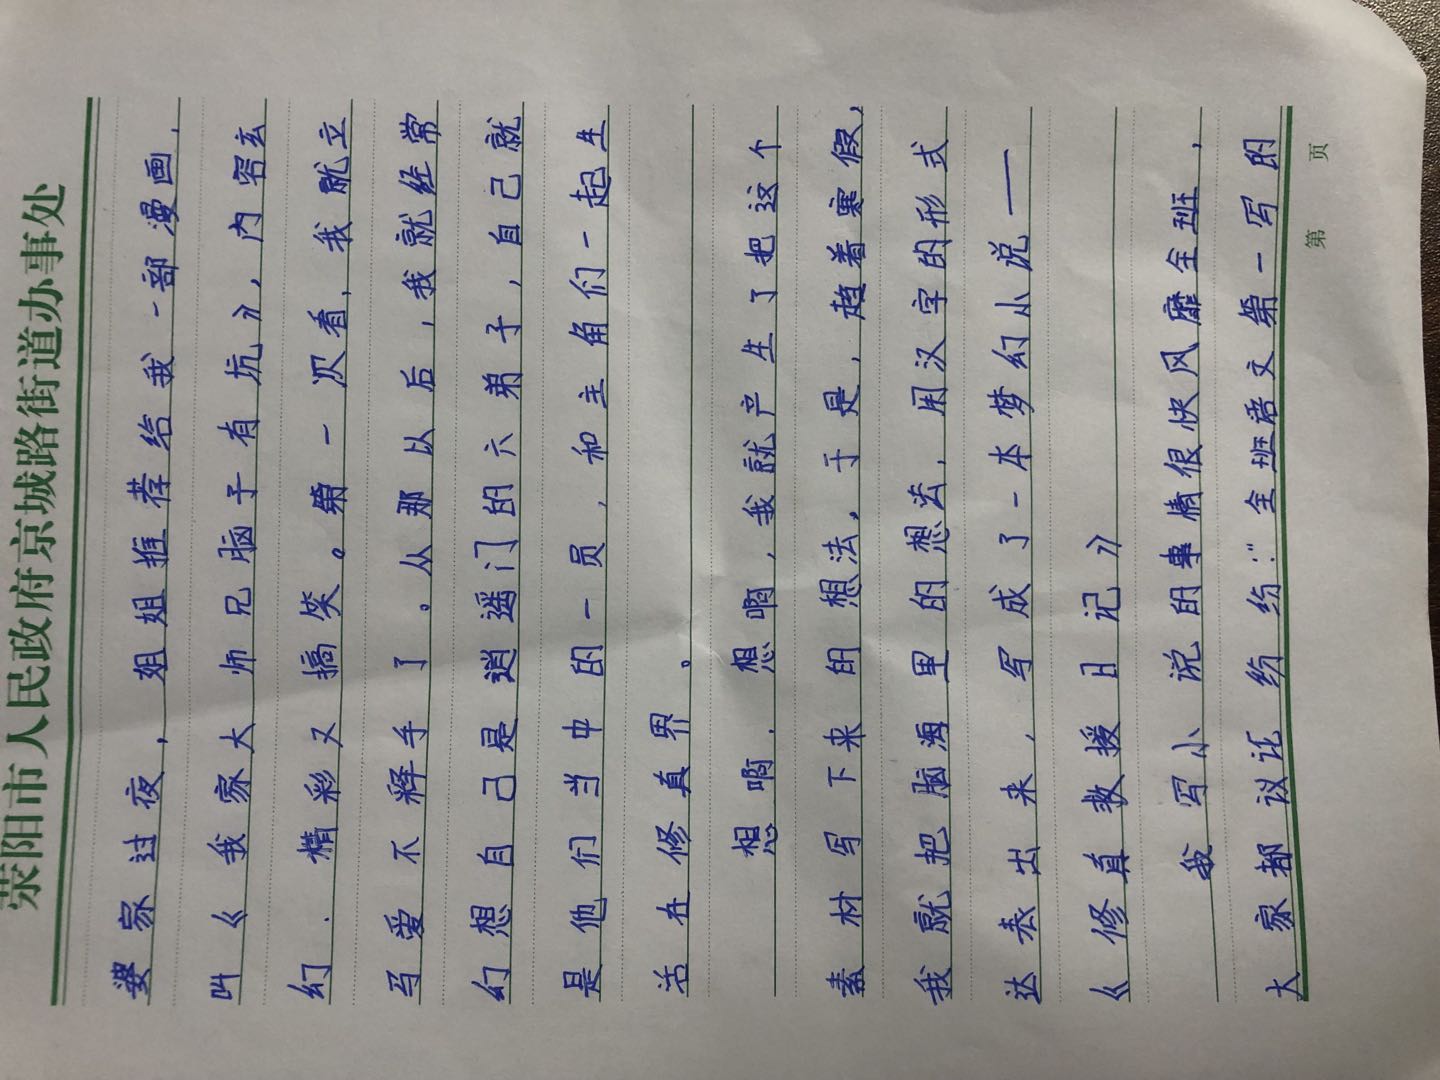 荥阳市人民政府京城路街道办事处
婆家过夜，姐姐推荐给我一部漫画，
叫《我家大师兄脑子有坑》，内容玄
幻、精彩又搞笑。第一次看，我就立
马爱不释手了。从那以后，我就经常
幻想自己是逍遥门的六弟子，自己就
是他们当中的一员，和主角们一起生
活在修真界。
想啊，想啊，我就产生了把这个
素材写下来的想法，于是，趁着寒假，
我就把脑海里的想法，用汉字的形式
达表出来，写成了一本梦幻小说——
《修真救援日记》
我写小说的事情很快风靡全班，
大家都议论纷纷："全班语文第一写的
第 页